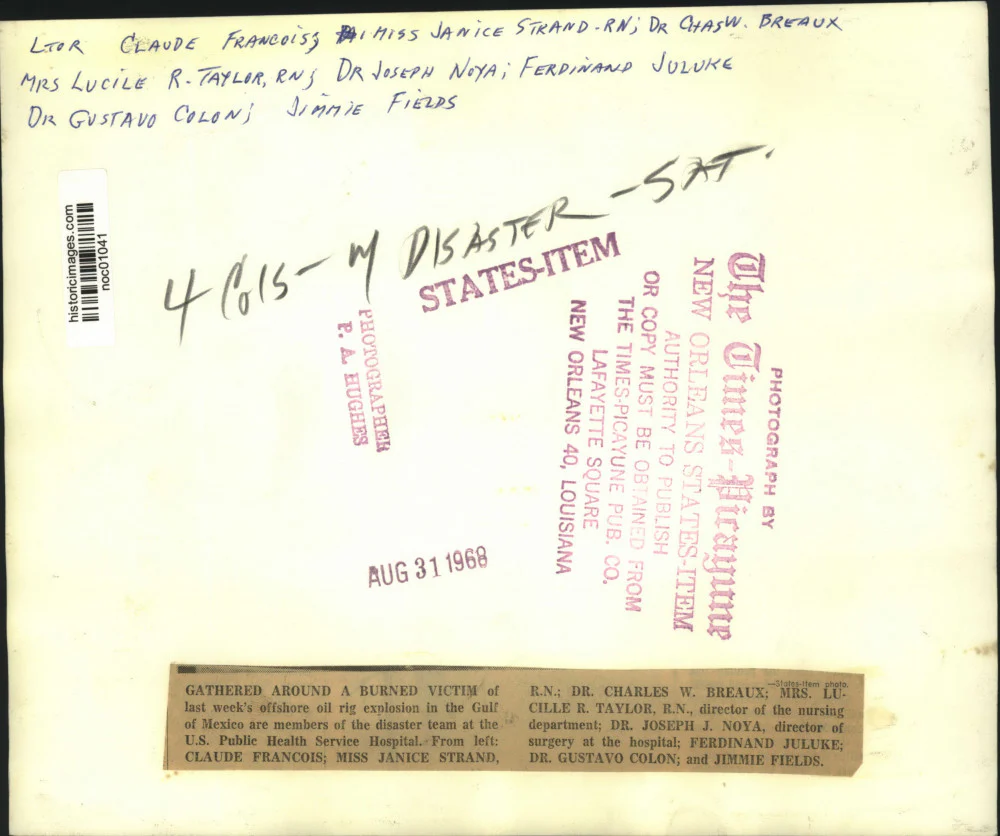 L TO R CLAUDE FRANCOIS; MISS JANICE STRAND-RN; DR CHAS W. BREAUX
MRS LUCILE R. TAYLOR, RN; DR JOSEPH NOYA; FERDINAND JULUKE
DR GUSTAVO COLON; JIMMIE FIELDS
historicimages.com
noc01041
4 Cols - W DISASTER - SAT.
STATES-ITEM
PHOTOGRAPHER
P. A. HUGHES
PHOTOGRAPH BY
The Times-Picayune
NEW ORLEANS STATES-ITEM
AUTHORITY TO PUBLISH
OR COPY MUST BE OBTAINED FROM
THE TIMES-PICAYUNE PUB. CO.
LAFAYETTE SQUARE
NEW ORLEANS 40, LOUISIANA
AUG 31 1968
GATHERED AROUND A BURNED VICTIM of
last week's offshore oil rig explosion in the Gulf
of Mexico are members of the disaster team at the
U.S. Public Health Service Hospital. From left:
CLAUDE FRANCOIS; MISS JANICE STRAND,
—States-Item photo.
R.N.; DR. CHARLES W. BREAUX; MRS. LU-
CILLE R. TAYLOR, R.N., director of the nursing
department; DR. JOSEPH J. NOYA, director of
surgery at the hospital; FERDINAND JULUKE;
DR. GUSTAVO COLON; and JIMMIE FIELDS.